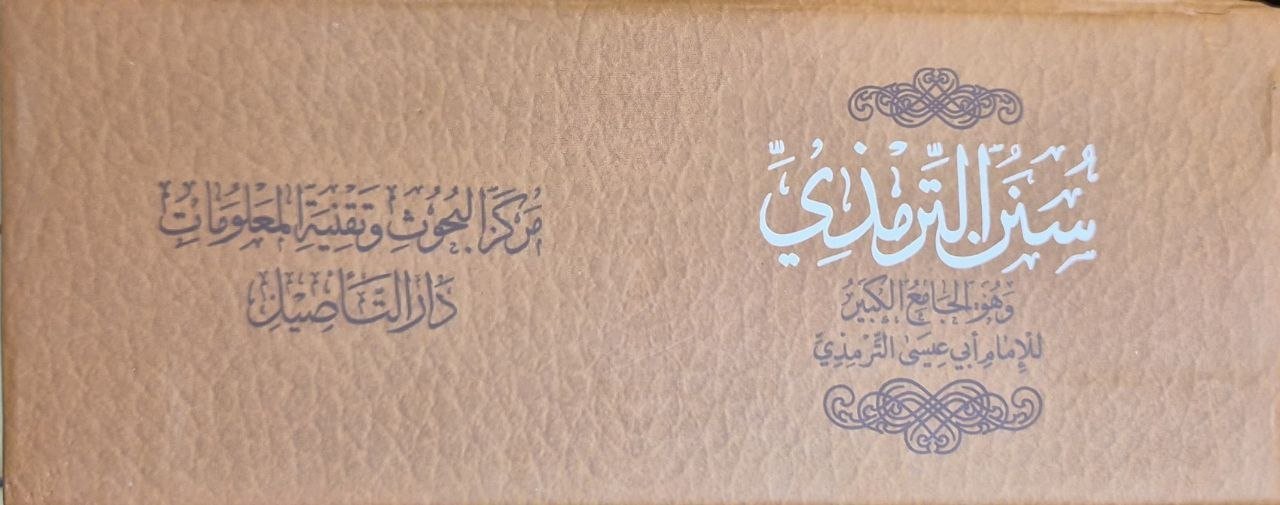 سُنَنُ التِّرْمِذِيِّ
وَهُوَ الجَامِعُ الكَبِيرُ
لِلْإِمَامِ أَبِي عِيسَى التِّرْمِذِيِّ
مَرْكَزُ البُحُوثِ وَتَقْنِيَةِ المَعْلُومَاتِ
دَارُ التَّأْصِيلِ